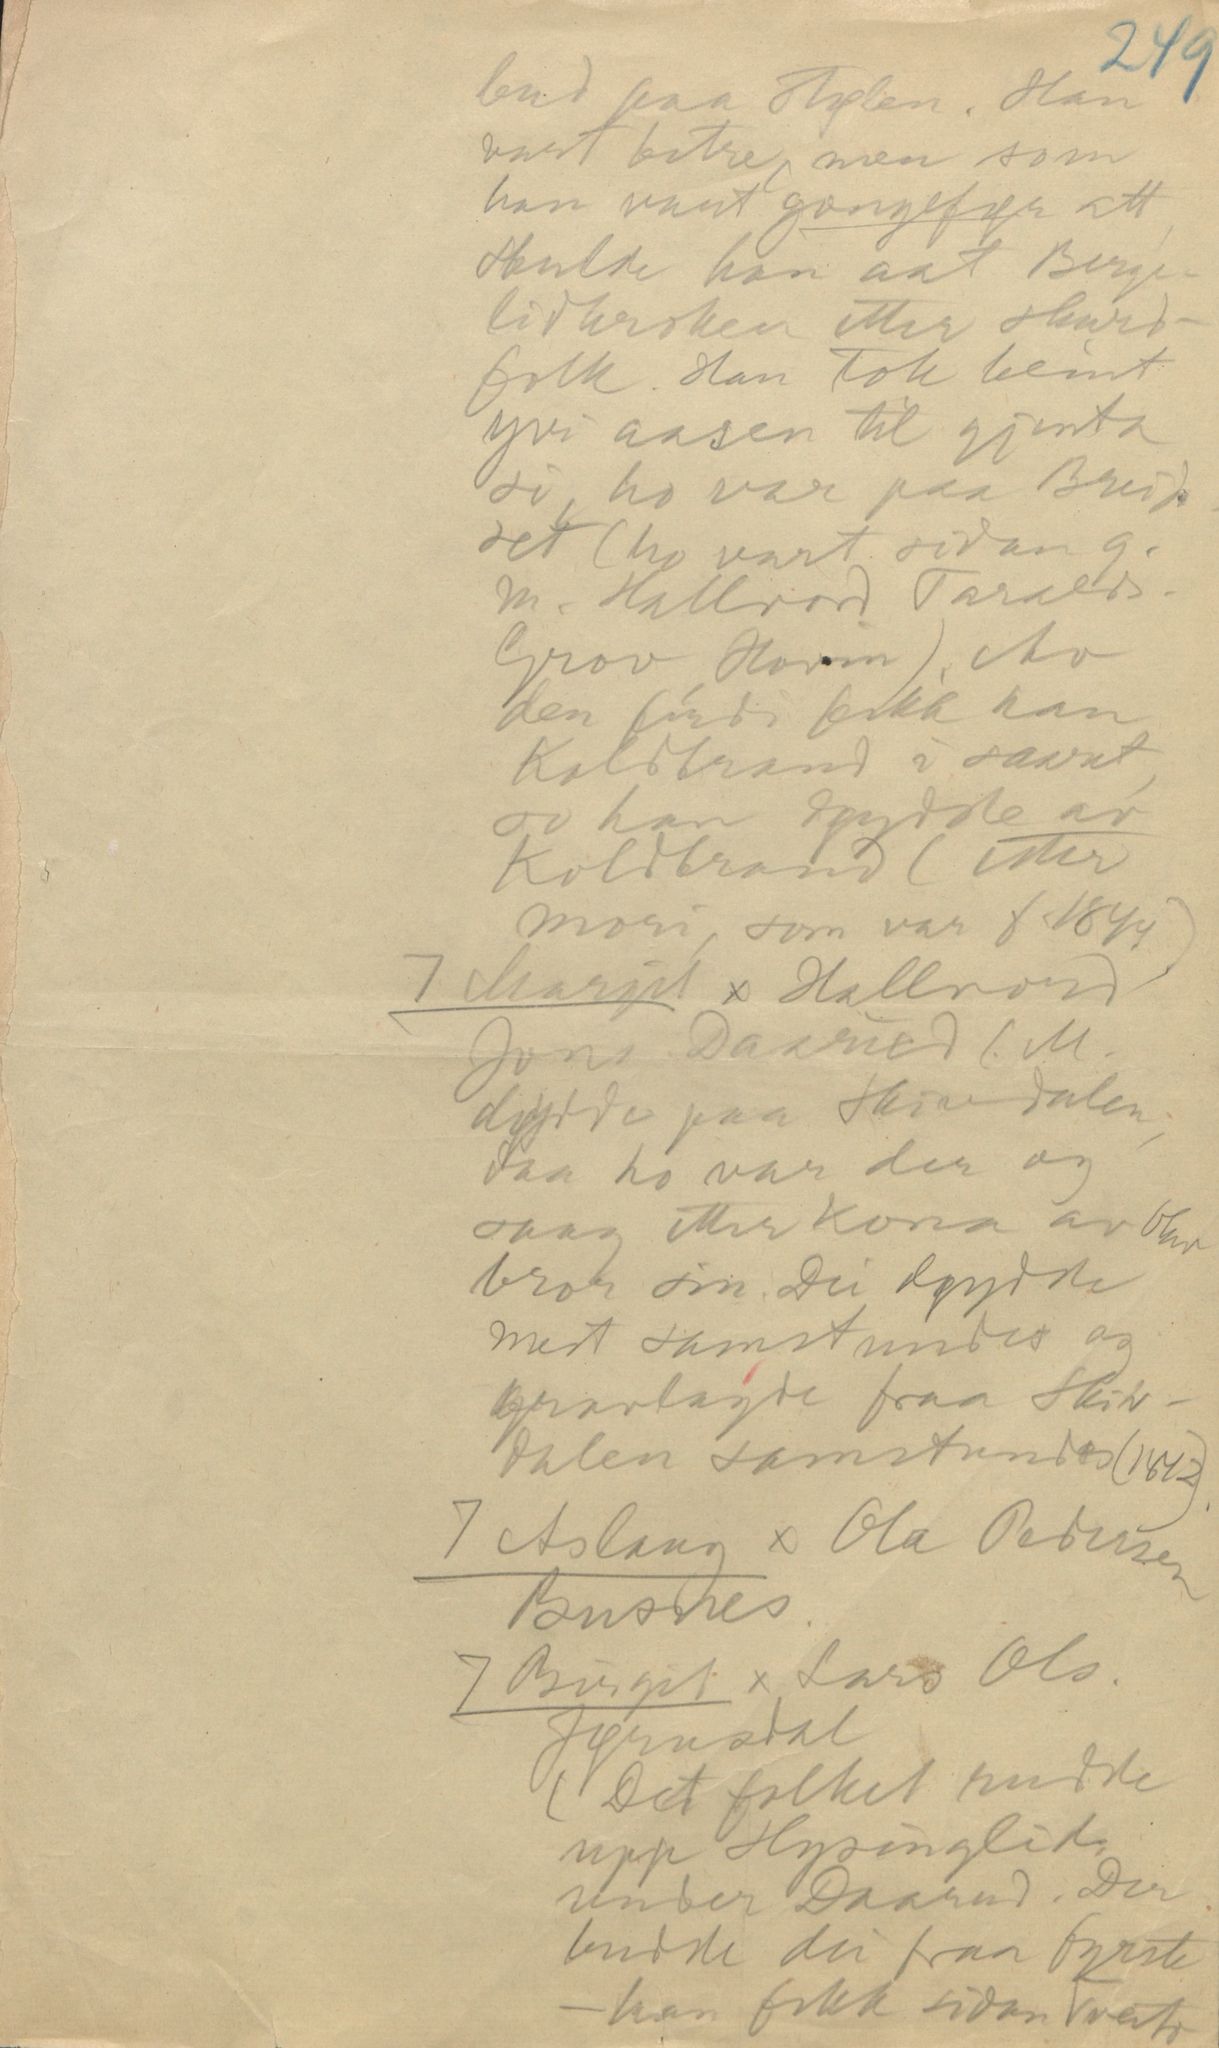 249
bud paa Stylen. Han
vart betre, men som
han vart gongefør att,
skulde han aat Berge-
lidkroken etter skurd-
folk. Han tok beint
yvi aasen til gjenta
si, ho var paa Breid-
set (ho vart sidan g.
m. Hallvord Taralds.
Grov, Hovin). Av
den ferdi fekk han
Koldbrand i saaret,
so han døydde av
Koldbrand (etter
mori, som var f. 1844)
7 Margit x Hallvord
Jons. Daarud (. M.
døydde paa Skirvdalen,
daa ho var der og
saag etter Kona av
bror sin. Dei døydde
mest samstundes og
gravlagde fraa Skirv-
dalen samstundes (1842).
7 Aslaug x Ola Pedersen
Busnes.
7 Birgit x Lars Ols.
Jørnsdal
(Det folket rudde
upp Hysinglid
under Daarud. Der
budde dei fraa fyrste
- han fekk sidan